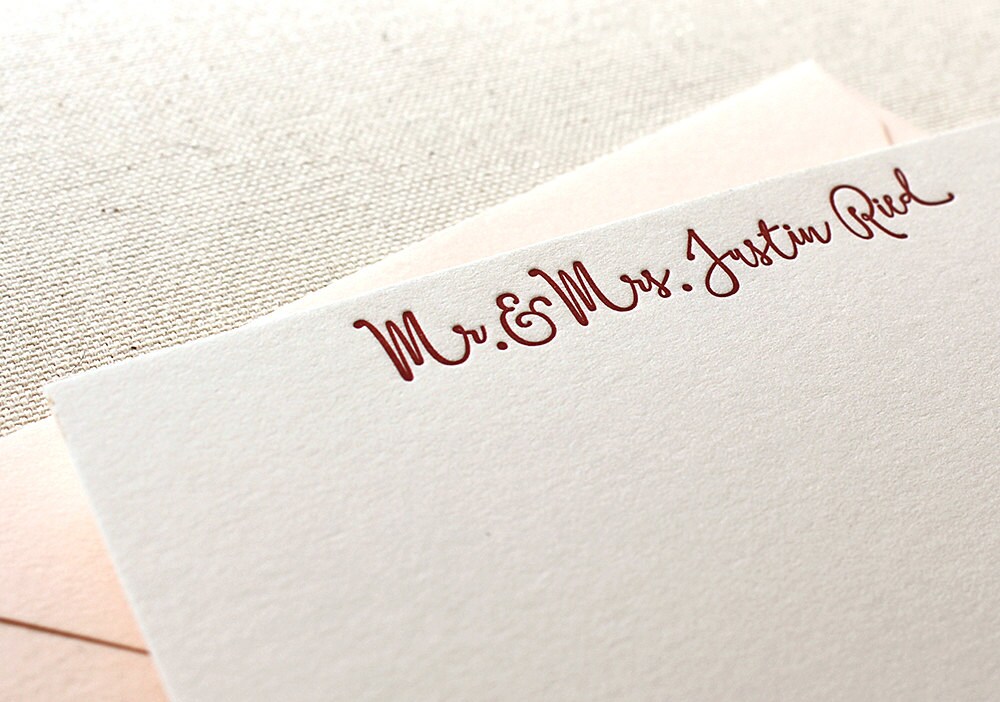 Mr. & Mrs. Justin Ried